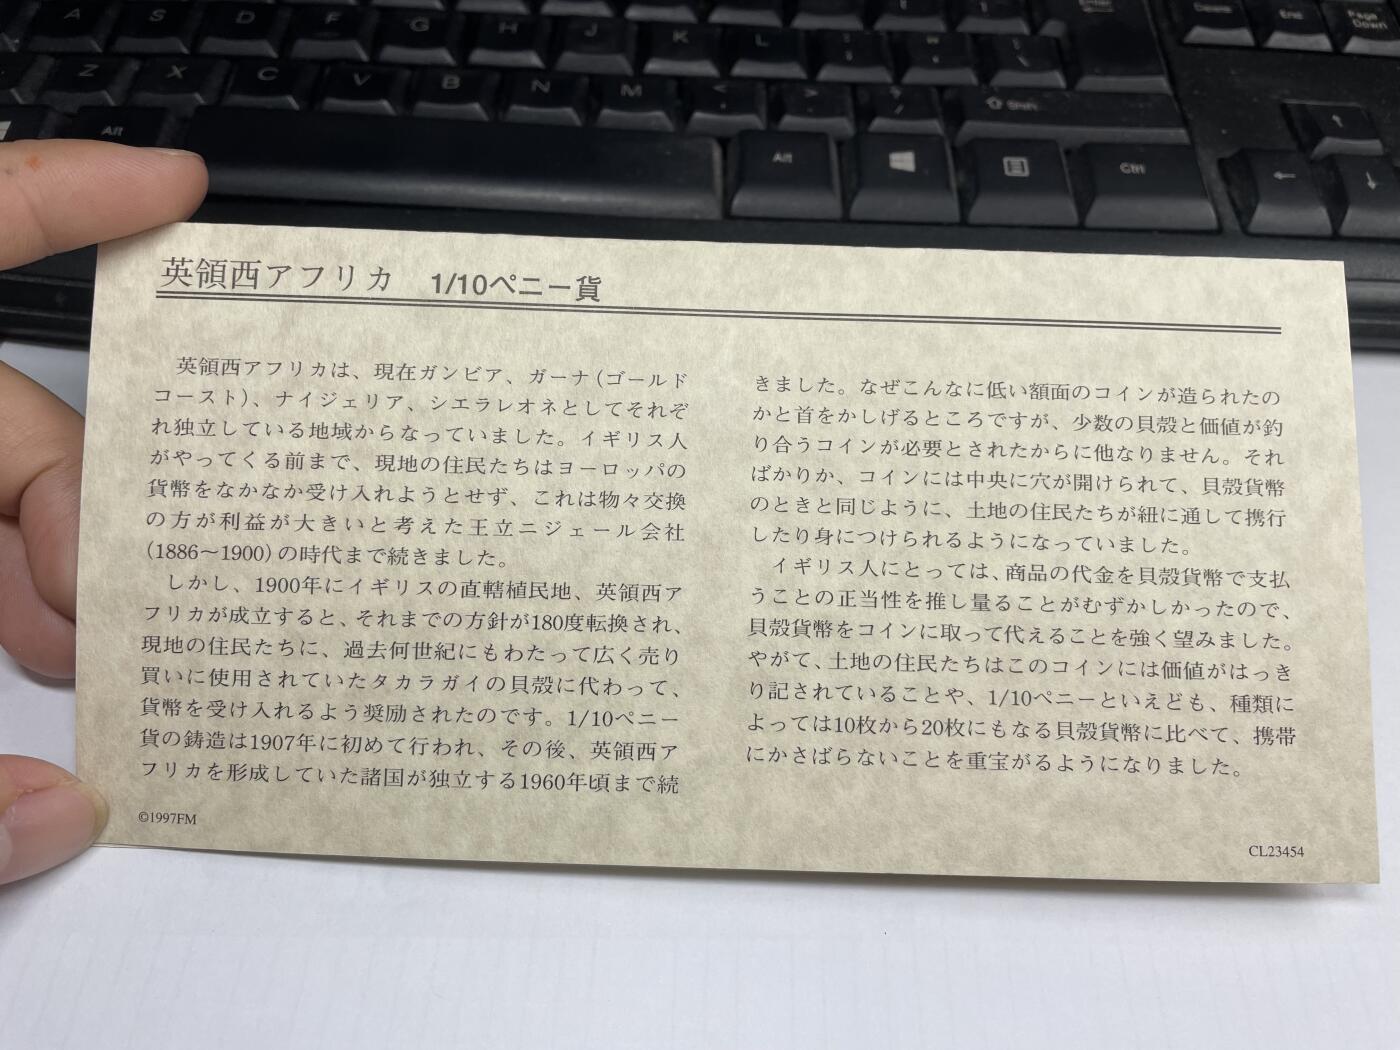 A
S
D
F
G
H
J
K
L
Enter
Delete
End
Page Down
Z
X
C
V
B
N
M
Shift
Alt
Alt
Ctrl
英領西アフリカ 1/10ペニー貨
英領西アフリカは、現在ガンビア、ガーナ(ゴールド
コースト)、ナイジェリア、シエラレオネとしてそれぞ
れ独立している地域からなっていました。イギリス人
がやってくる前まで、現地の住民たちはヨーロッパの
貨幣をなかなか受け入れようとせず、これは物々交換
の方が利益が大きいと考えた王立ニジェール会社
(1886〜1900)の時代まで続きました。
しかし、1900年にイギリスの直轄植民地、英領西ア
フリカが成立すると、それまでの方針が180度転換され、
現地の住民たちに、過去何世紀にもわたって広く売り
買いに使用されていたタカラガイの貝殻に代わって、
貨幣を受け入れるよう奨励されたのです。1/10ペニー
貨の鋳造は1907年に初めて行われ、その後、英領西ア
フリカを形成していた諸国が独立する1960年頃まで続
きました。なぜこんなに低い額面のコインが造られたの
かと首をかしげるところですが、少数の貝殻と価値が釣
り合うコインが必要とされたからに他なりません。それ
ばかりか、コインには中央に穴が開けられて、貝殻貨幣
のときと同じように、土地の住民たちが紐に通して携行
したり身につけられるようになっていました。
イギリス人にとっては、商品の代金を貝殻貨幣で支払
うことの正当性を推し量ることがむずかしかったので、
貝殻貨幣をコインに取って代えることを強く望みました。
やがて、土地の住民たちはこのコインには価値がはっき
り記されていることや、1/10ペニーといえども、種類に
よっては10枚から20枚にもなる貝殻貨幣に比べて、携帯
にかさばらないことを重宝がるようになりました。
©1997FM
CL23454